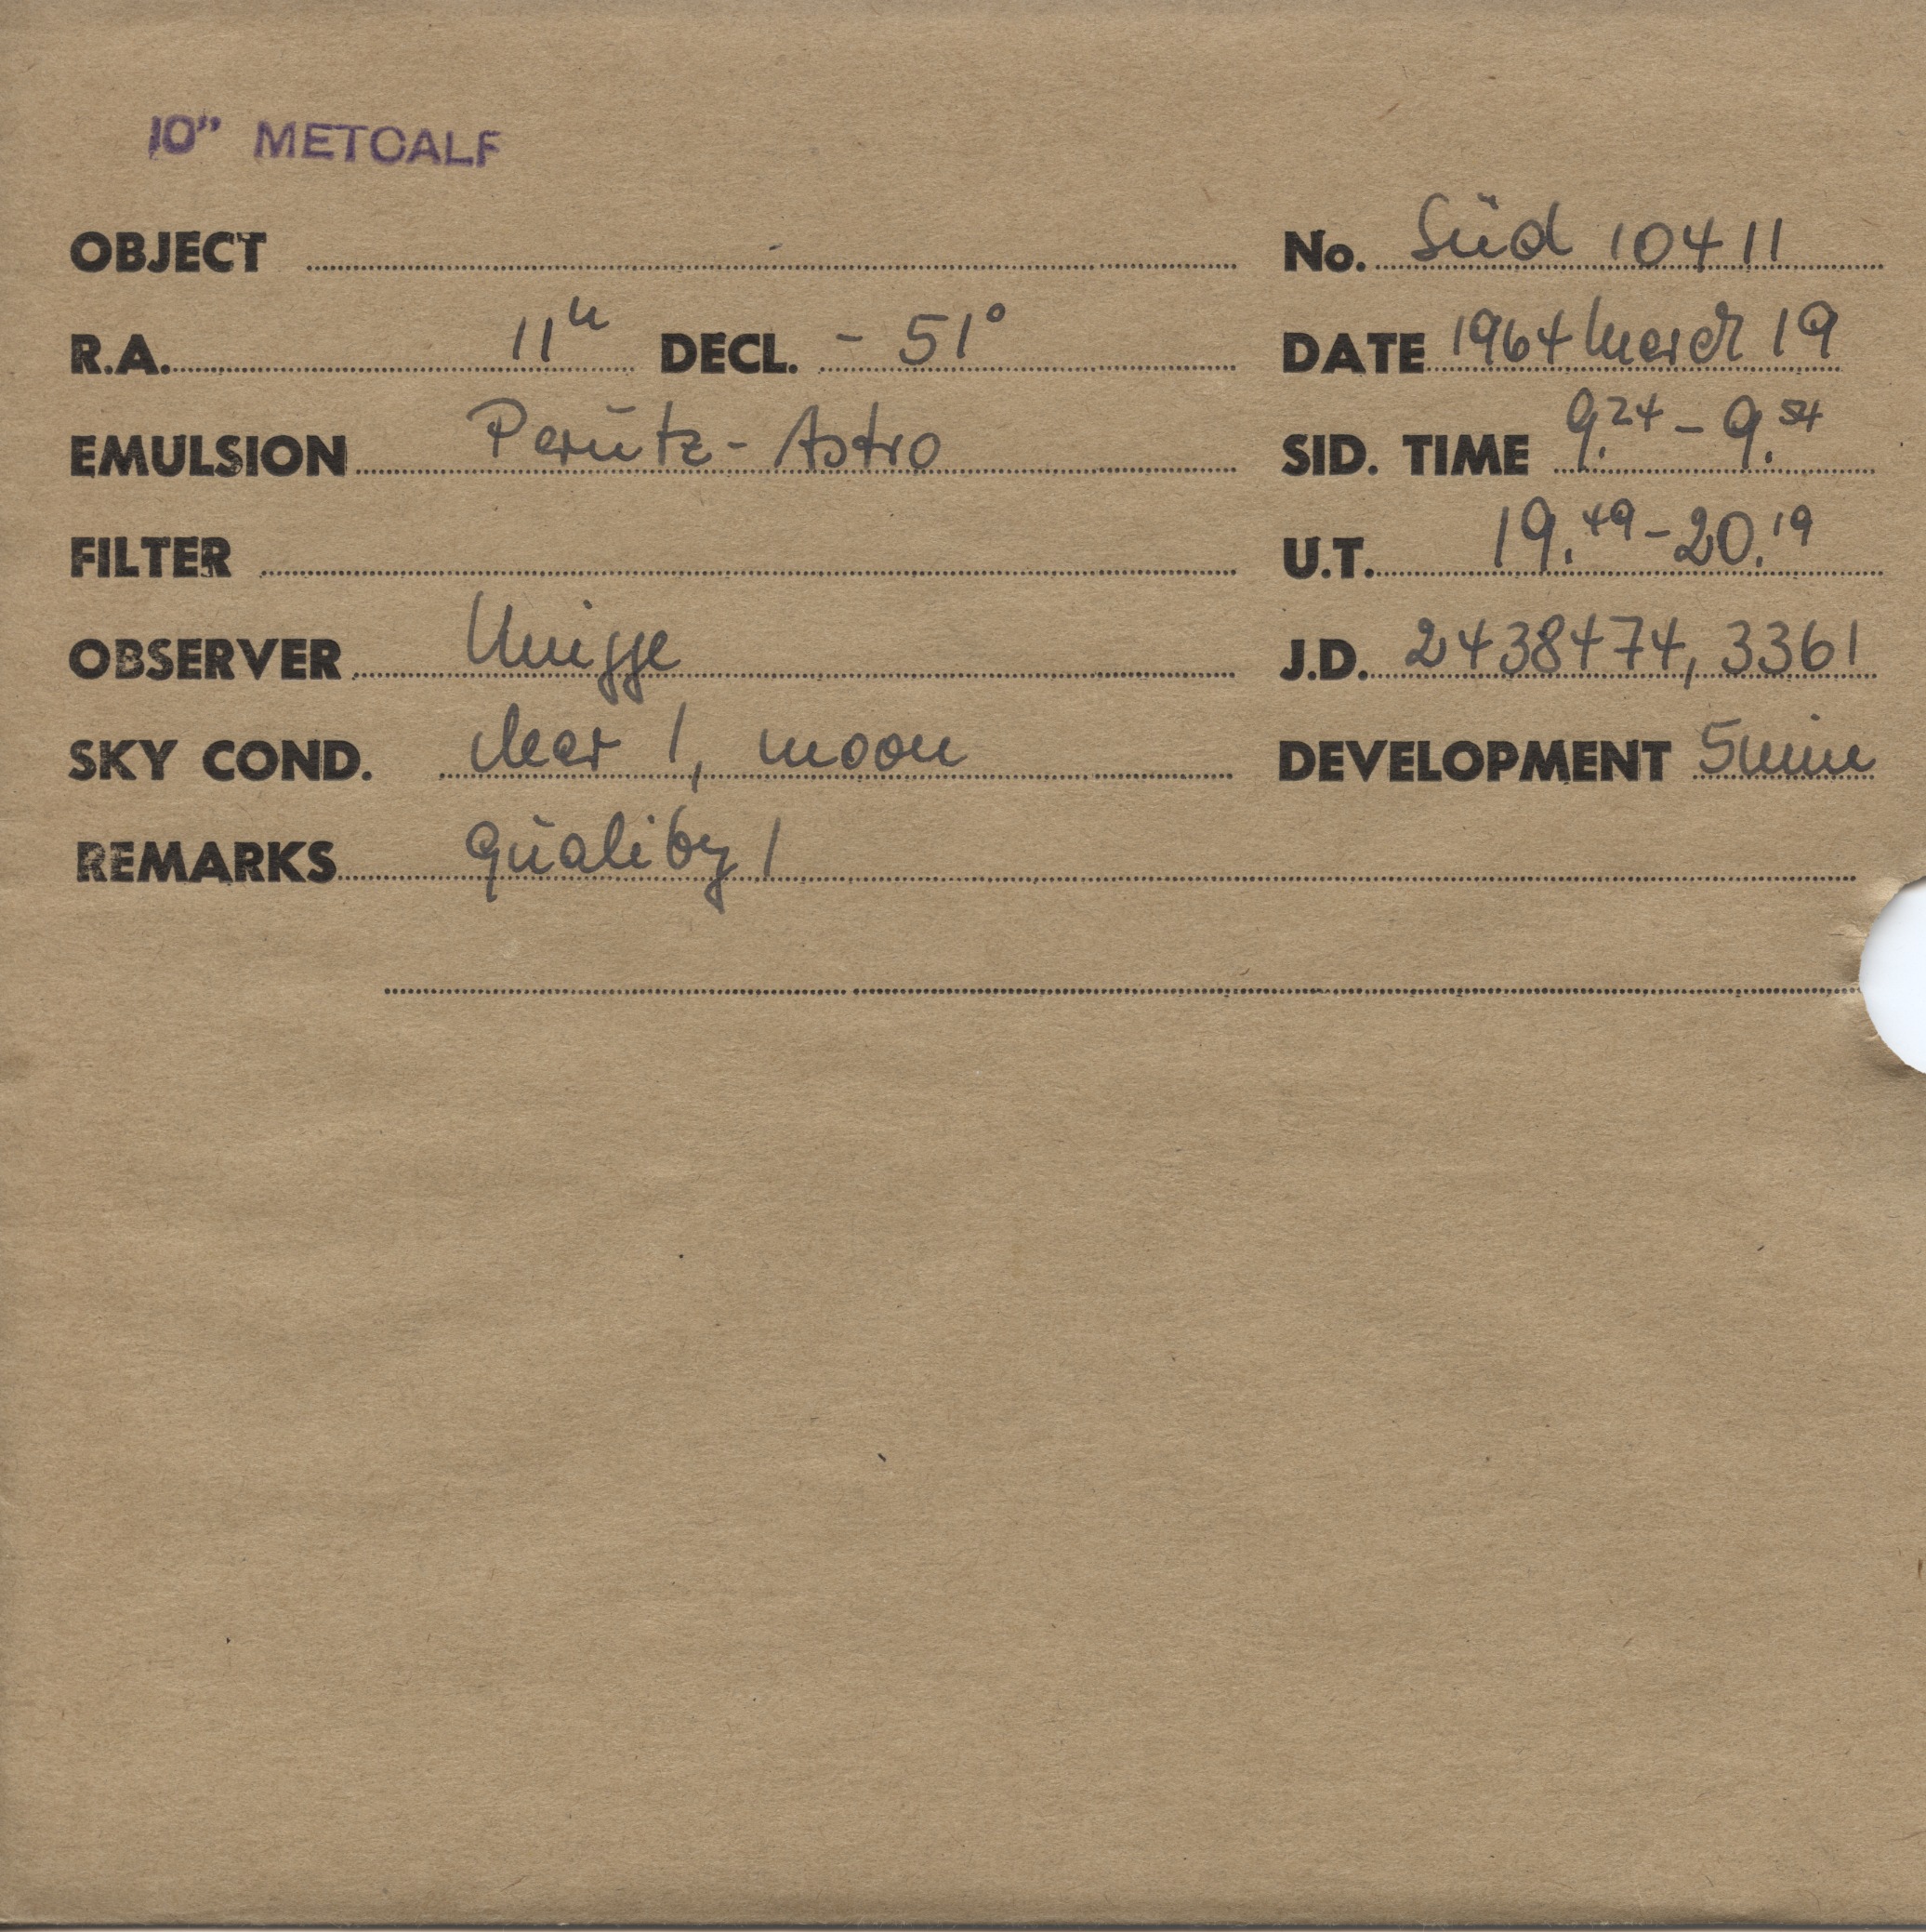 10" METCALF
OBJECT No. Süd 10411
R.A. 11h DECL. - 51° DATE 1964 March 19
EMULSION Perutz - Astro SID. TIME 9.24 - 9.54
FILTER U.T. 19.49 - 20.19
OBSERVER Knigge J.D. 2438474,3361
SKY COND. clear 1, moon DEVELOPMENT 5min
REMARKS quality 1